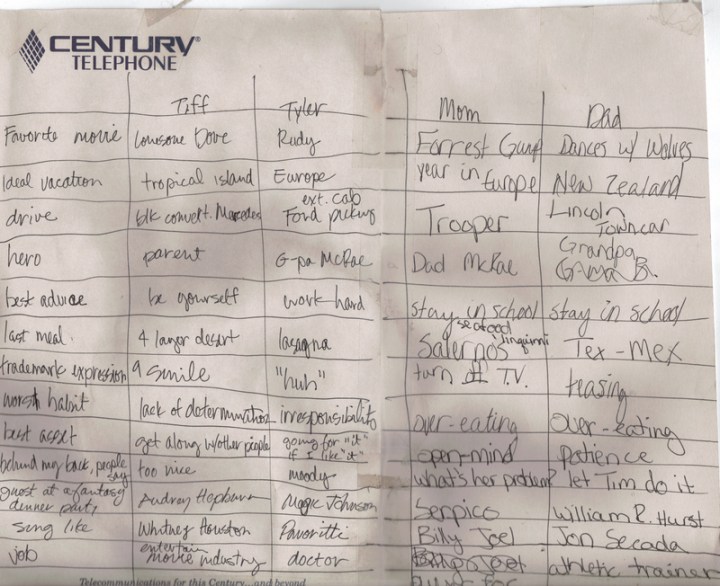 CENTURY®
TELEPHONE
Tiff Tyler Mom Dad
Favorite movie Lonesome Dove Rudy Forrest Gump Dances w/ Wolves
Ideal vacation tropical island Europe year in Europe New Zealand
drive blk convert. Mercedes ext. cab Ford pickup Trooper Lincoln Towncar
hero parent G-pa McRae Dad McRae Grandpa G-ma B.
best advice be yourself work hard stay in school stay in school
last meal 4 layer desert lasagna Salernos seafood linguinni Tex-Mex
trademark expression a smile "huh" turn off T.V. teasing
worst habit lack of determination irresponsibility over-eating over-eating
best asset get along w/other people going for "it" if I like "it" open-mind patience
behind my back, people say too nice moody what's her problem? let Tim do it
guest at a fantasy dinner party Audrey Hepburn Magic Johnson Serpico William R. Hurst
sing like Whitney Houston Pavoritti Billy Joel Jon Secada
job entertain movie industry doctor athletic trainer
Telecommunications for this Century...and beyond